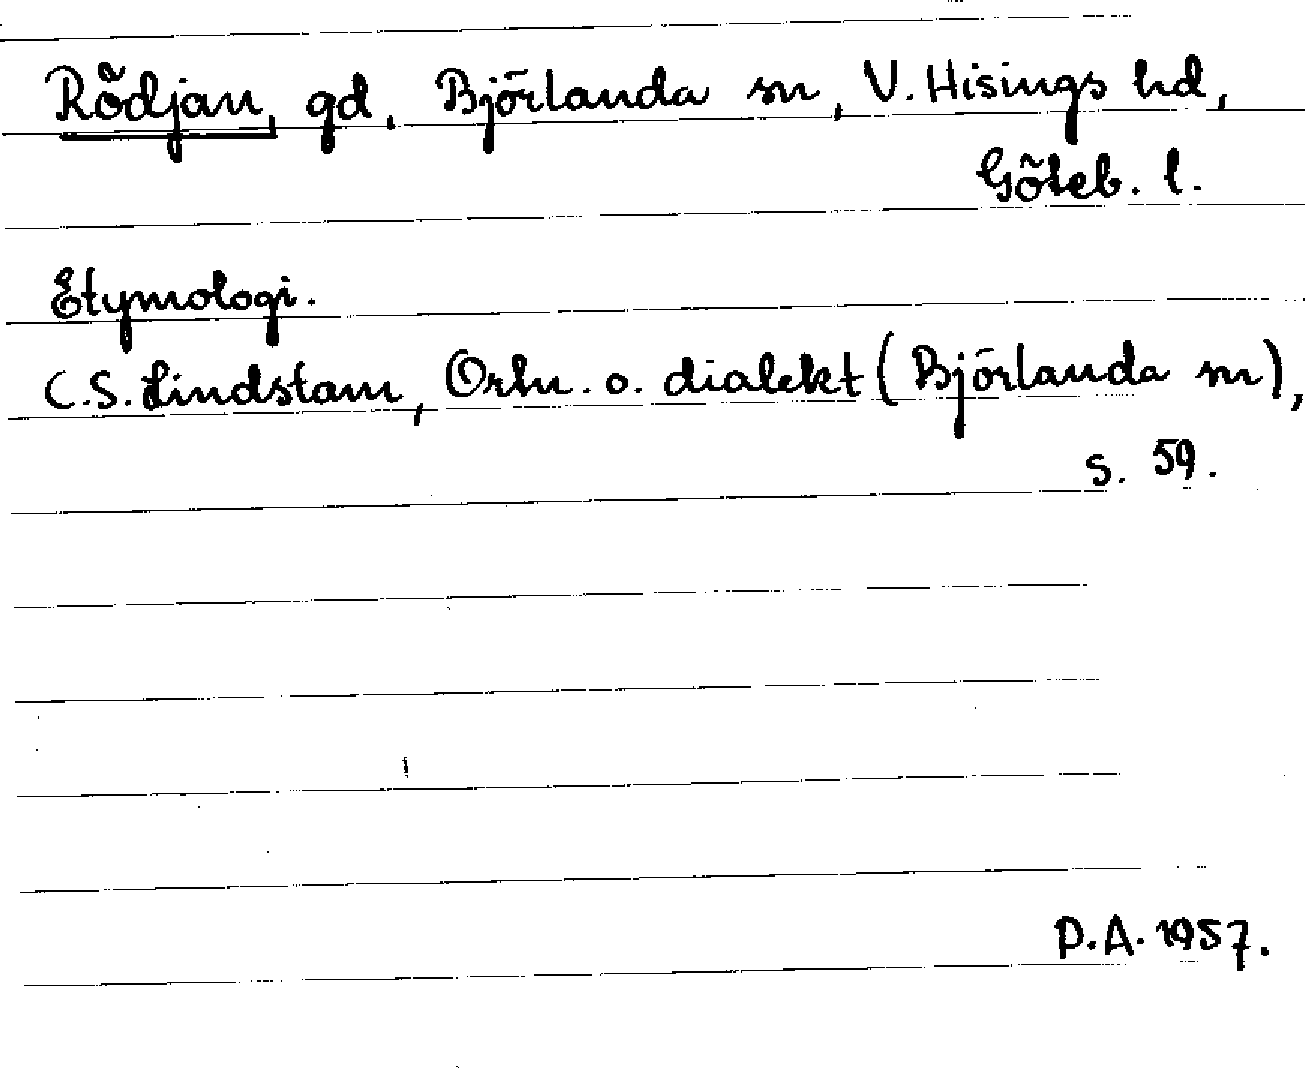 Rödjan, gd, Björlanda sn, V. Hisings hd,
Göteb. l.
Etymologi.
C.S. Lindstam, Ortn. o. dialekt (Björlanda sn),
s. 59.
P.A. 1957.